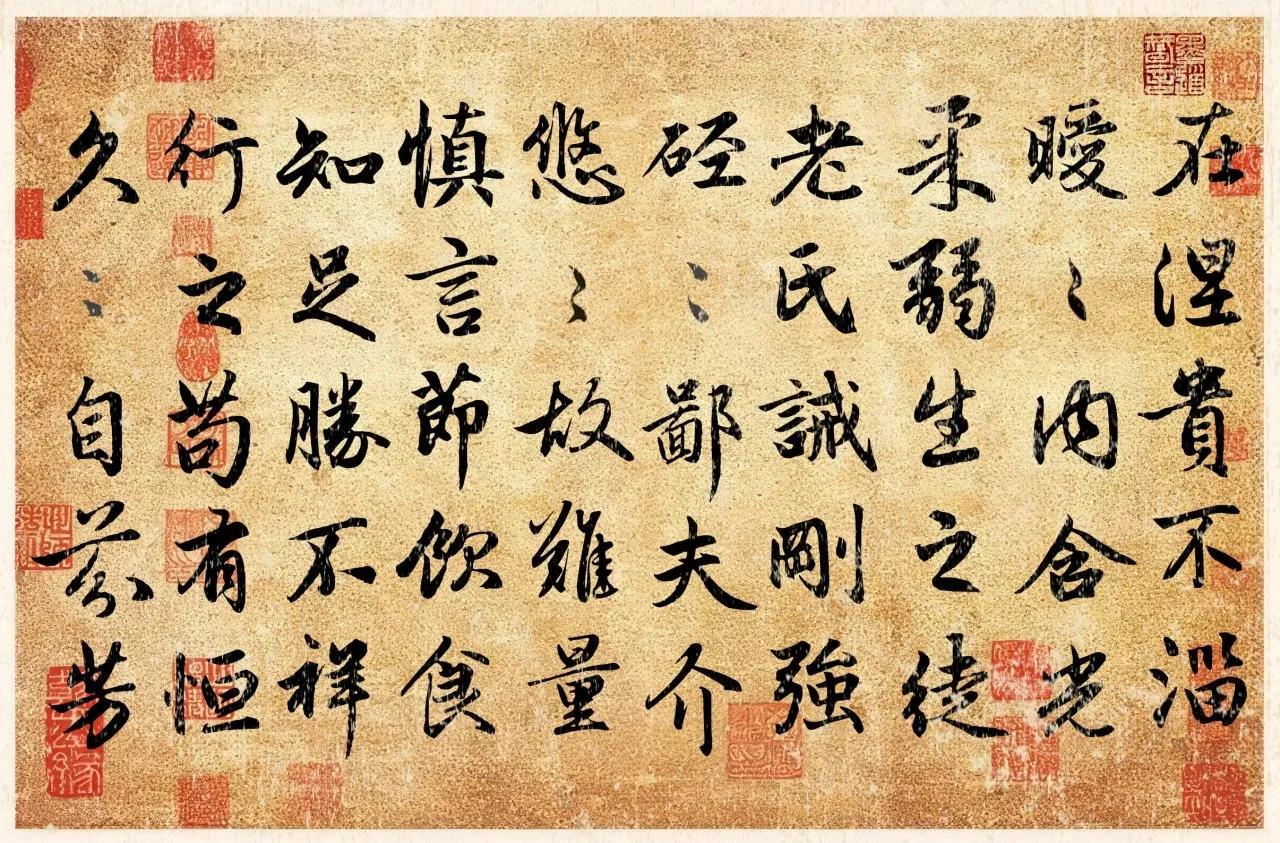 在涅貴不淄
曖〻內含光
柔弱生之徒
老氏誡剛強
硜〻鄙夫介
悠〻故難量
慎言節飲食
知足勝不祥
行之苟有恒
久〻自芬芳